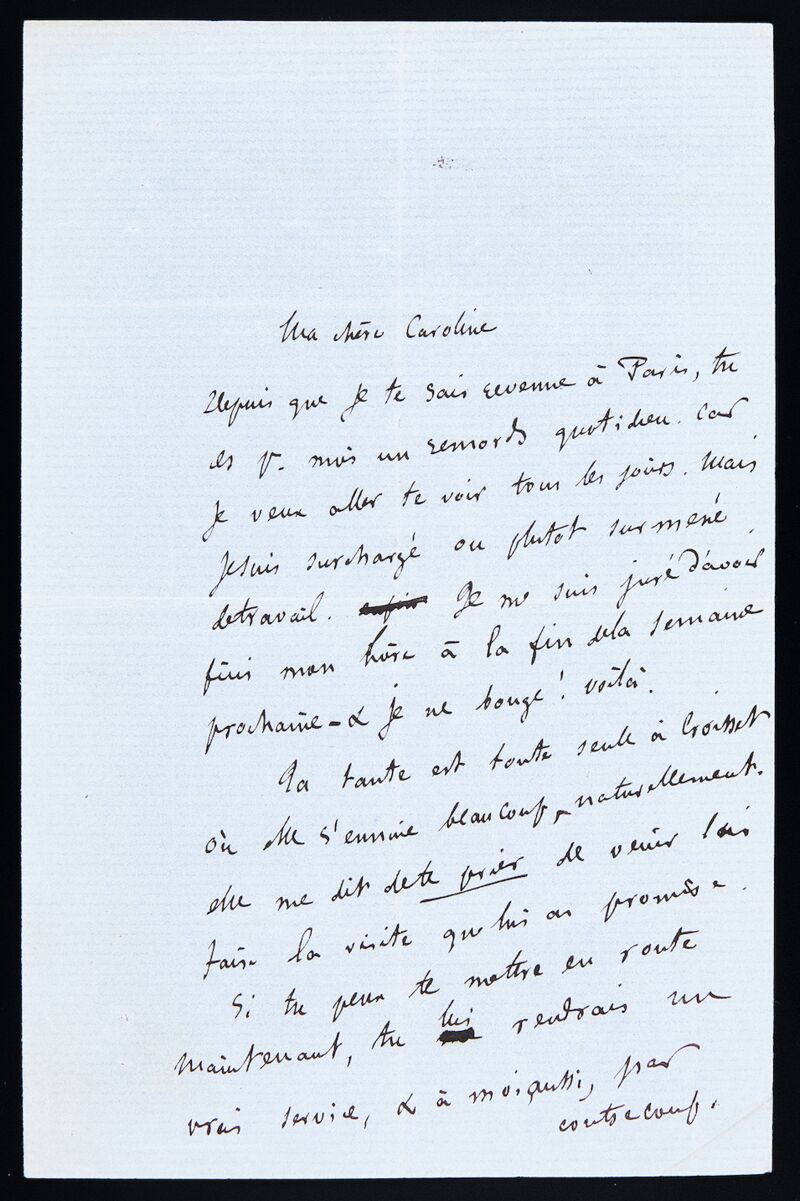 Ma chère Caroline
Depuis que je te sais revenue à Paris, tu
es pr. moi un remords quotidien. Car
je veux aller te voir tous les jours. Mais
je suis surchargé ou plutot surmené
de travail. enfin Je me suis juré d'avoir
fini mon livre à la fin de la semaine
prochaine – & je ne bouge! voilà.
Ta tante est toute seule à Croisset
où elle s'ennuie beaucoup, naturellement.
elle me dit de te prier de venir lui
faire la visite que lui as promise.
Si tu peux te mettre en route
maintenant, tu lui rendrais un
vrai service, & à moi aussi, par
contrecoup.